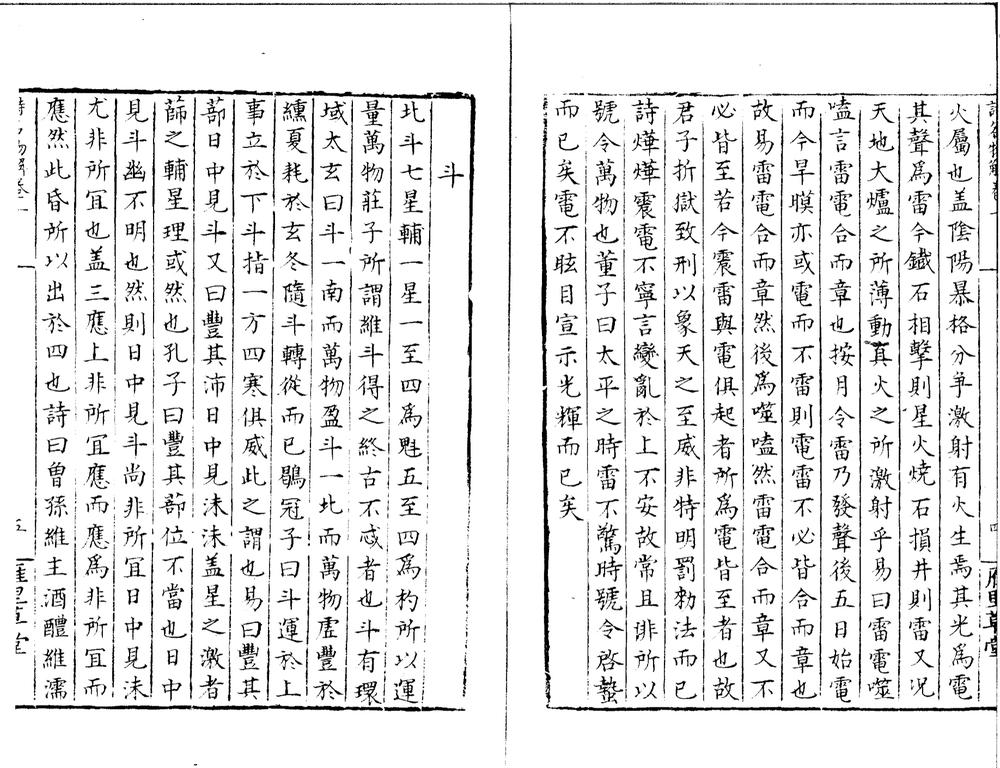 火屬也盖隂陽暴格分争激射有火生焉其光爲電
其聲爲雷今鐵石相擊則星火燒石損井則雷又况
天地大爐之所薄動真火之所激射乎易曰雷電噬
嗑言雷電合而章也按月令雷乃發聲後五日始電
而今旱暵亦或電而不雷則電雷不必皆合而章也
故易雷電合而章然後爲噬嗑然雷電合而章又不
必皆至若今震雷與電俱起者所爲電皆至者也故
君子折獄致刑以象天之至威非特明罰勑法而已
詩爗爗震電不寧言變亂於上不安故常且非所以
號令萬物也董子曰太平之時雷不驚時號令啓蟄
而已矣電不眩目宣示光輝而已矣
四
斗
北斗七星輔一星一至四爲魁五至四爲杓所以運
量萬物莊子所謂維斗得之終古不忒者也斗有環
域太玄曰斗一南而萬物盈斗一北而萬物虛豐於
纁夏耗於玄冬隨斗轉從而已鶡冠子曰斗運於上
事立於下斗指一方四寒俱威此之謂也易曰豐其
蔀日中見斗又曰豐其沛日中見沬沬盖星之激者
蔀之輔星理或然也孔子曰豐其蔀位不當也日中
見斗幽不明也然則日中見斗尚非所宜日中見沬
尤非所宜也盖三應上非所宜應而應爲非所宜而
應然此昏所以出於四也詩曰曾孫維主酒醴維濡
五